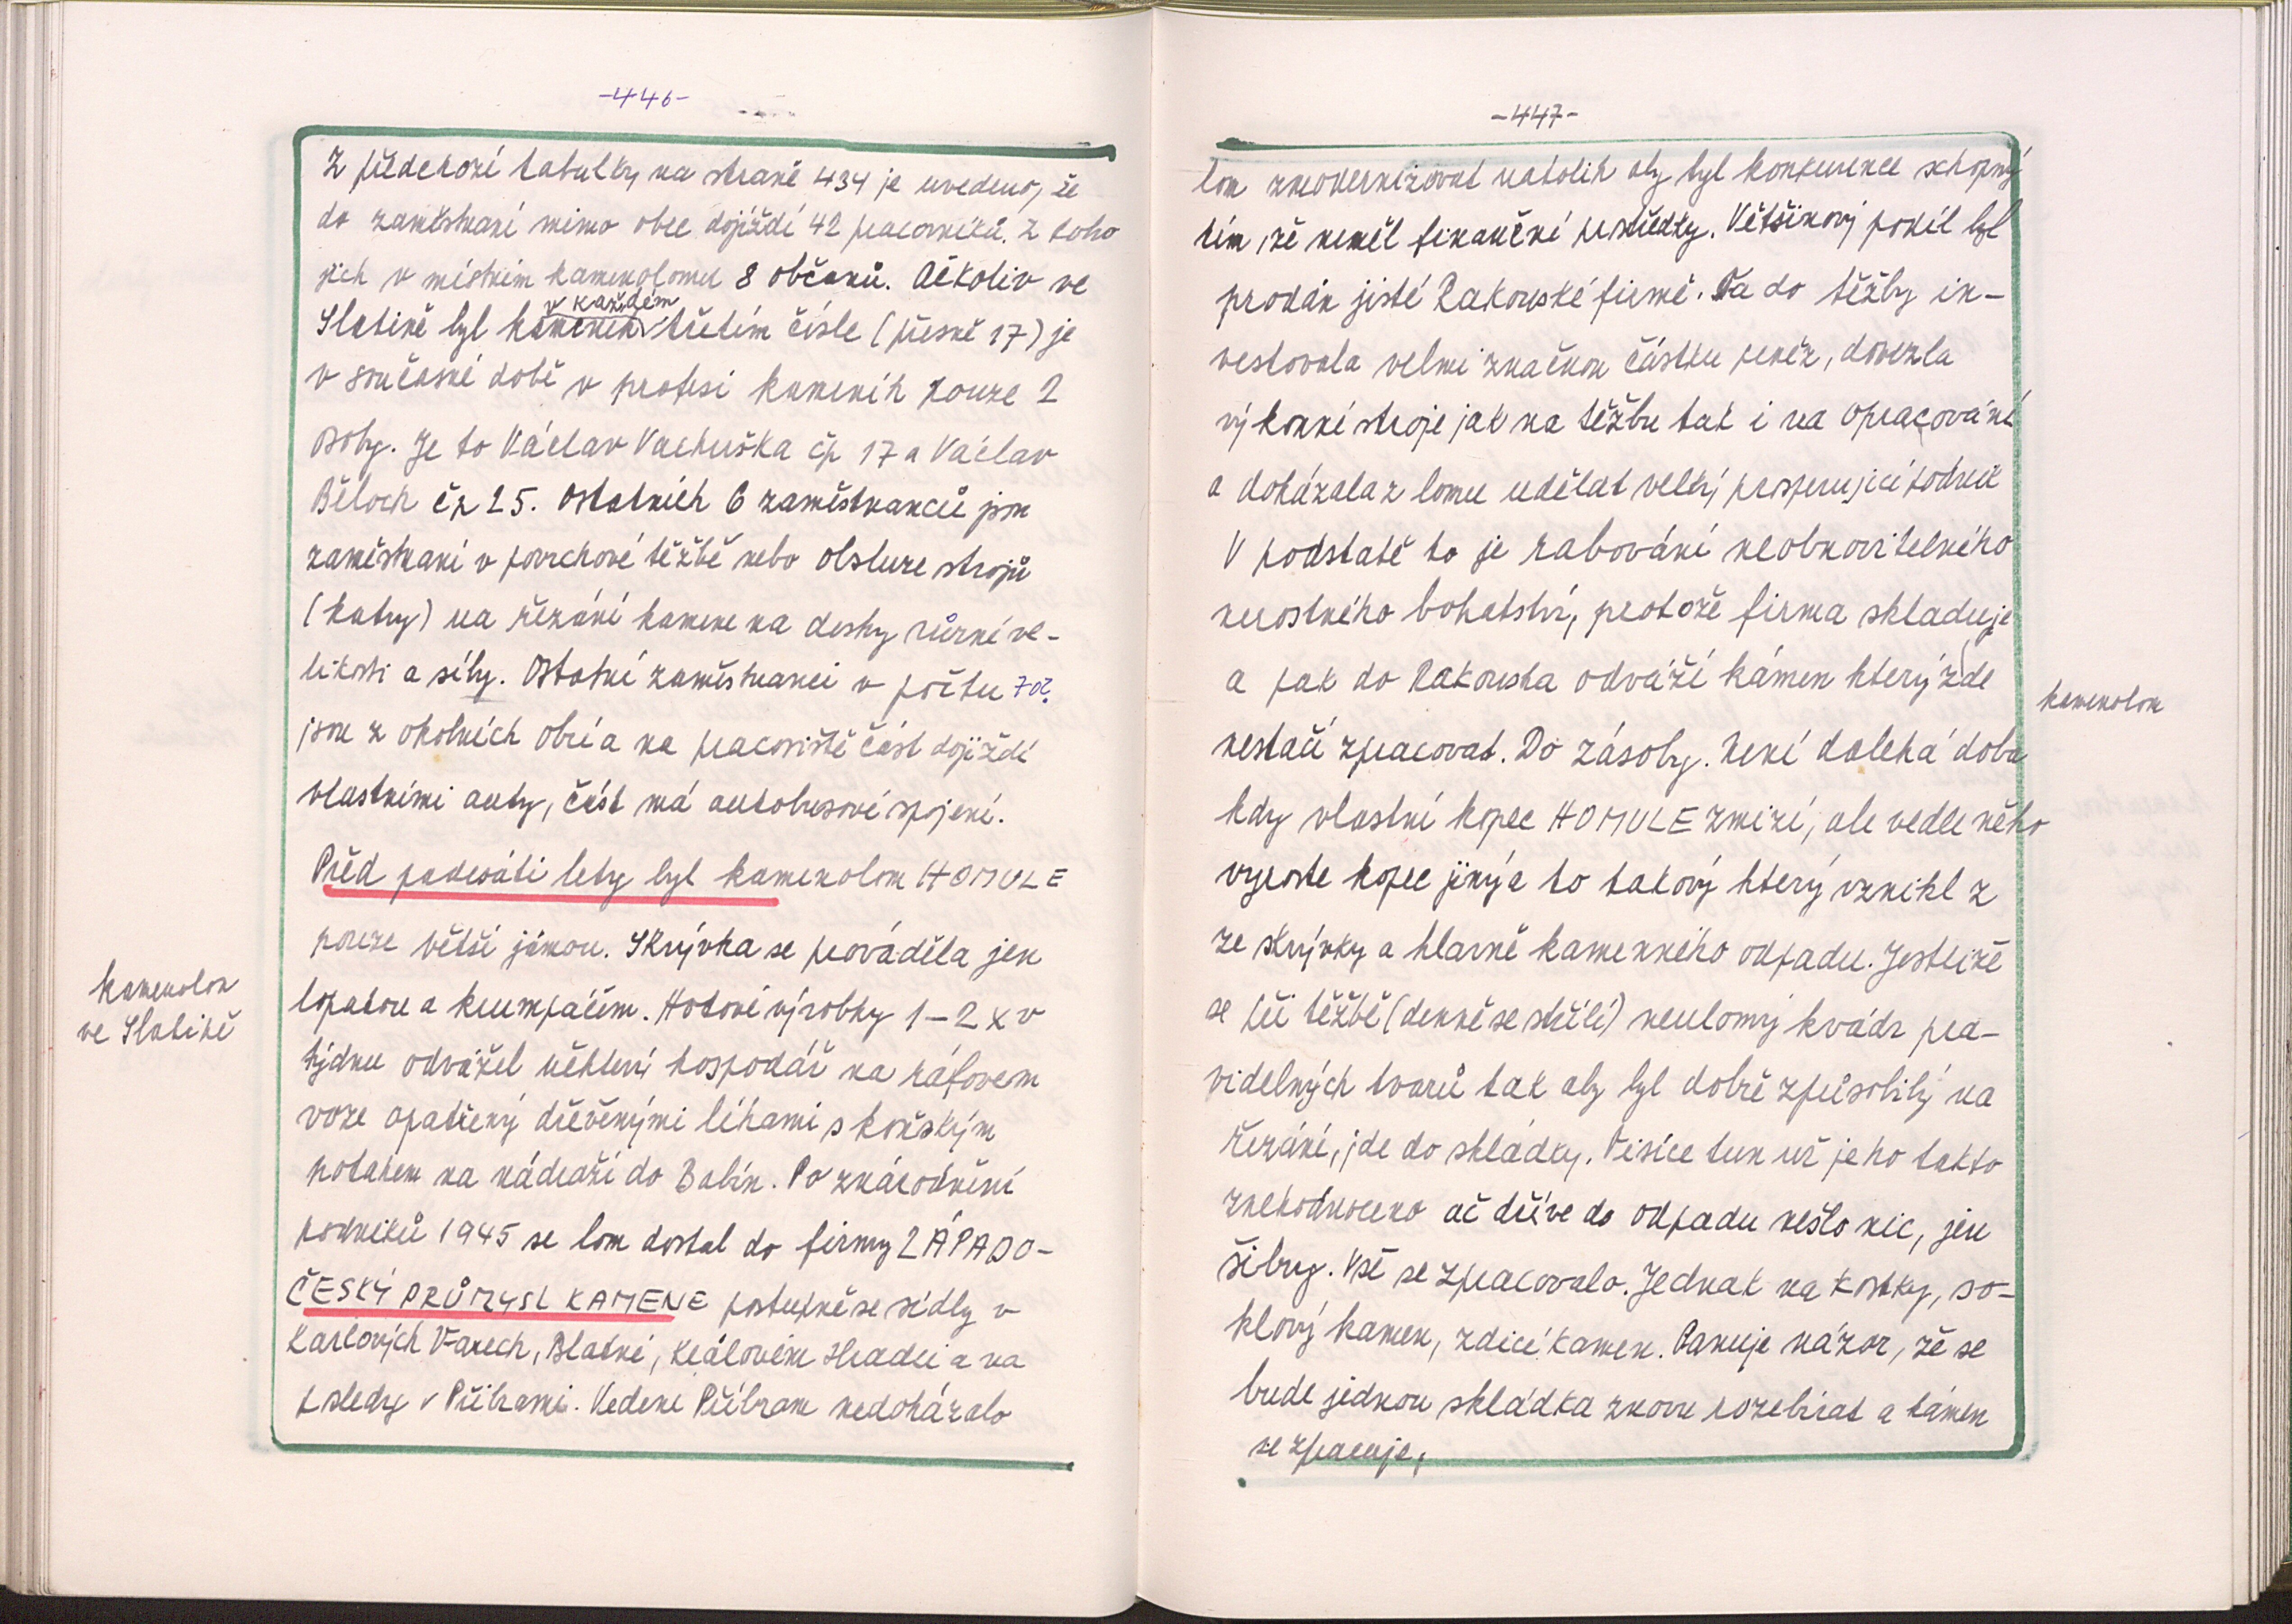 -446-
Z předchozí tabulky na straně 434 je uvedeno, že
do zaměstnaní mimo obec dojíždí 42 pracovníků. Z toho
jich v místním kamenolomu 8 občanů. Ačkoliv ve
v každém
Slatině byl kameník třetím čísle (přesně 17) je
v současné době v profesi kameník pouze 2
osoby. Je to Václav Vachuška čp 17 a Václav
Běloch čp 25. Ostatních 6 zaměstnanců jsou
zaměstnaní v povrchové těžbě nebo obsluze strojů
(katry) na řezání kamene na desky různé ve-
likosti a síly. Ostatní zaměstnanci v počtu 70?
jsou z okolních obcí a na pracoviště část dojíždí
vlastními auty, část má autobusové spojení.
Před padesáti lety byl kamenolom HOMULE
pouze větší jámou. Skrývka se prováděla jen
lopatou a krumpáčem. Hotové výrobky 1-2 x v
týdnu odvážel některý hospodář na ráfovem
voze opatřený dřevěnými líhami s koňským
potahem na nádraží do Babín. Po znárodnění
podniků 1945 se lom dostal do firmy ZÁPADO-
ČESKÝ PRŮMYSL KAMENE postupně se sídly v
Karlových Varech, Blatné, Králověm Hradci a na
posledy v Příbrami. Vedení Příbram nedokázalo
kamenolom
ve Slatině
-447-
lom zmodernizovat natolik aby byl konkurence schopný
tím, že neměl finanční prostředky. Většinový podíl byl
prodán jisté Rakouské firmě. Ta do těžby in-
vestovala velmi značnou částku peněz, dovezla
výkonné stroje jak na těžbu tak i na opracování
a dokázala z lomu udělat velký prosperující podnik
V podstatě to je rabování neobnovitelného
nerostného bohatství, protože firma skladuje
a pak do Rakouska odváží kámen který zde
nestačí zpracovat. Do zásoby. Není daleká doba
kdy vlastní kopec HOMULE zmizí, ale vedle něho
vyroste kopec jiný a to takový který vznikl z
ze skrývky a hlavně kamenného odpadu. Jestliže
se při těžbě (denně se střílí) neulomý kvádr pra-
videlných tvarů tak aby byl dobře způsobilý na
řezání, jde do skládky. Tisíce tun už je ho takto
znehodnoceno ač dříve do odpadu nešlo nic, jen
šibry. Vše se zpracovalo. Jednak na kostky, so-
klový kamen, zdící kamen. Panuje názor, že se
bude jednou skládka znovu rozebírat a kámen
se zpracuje,
kamenolom